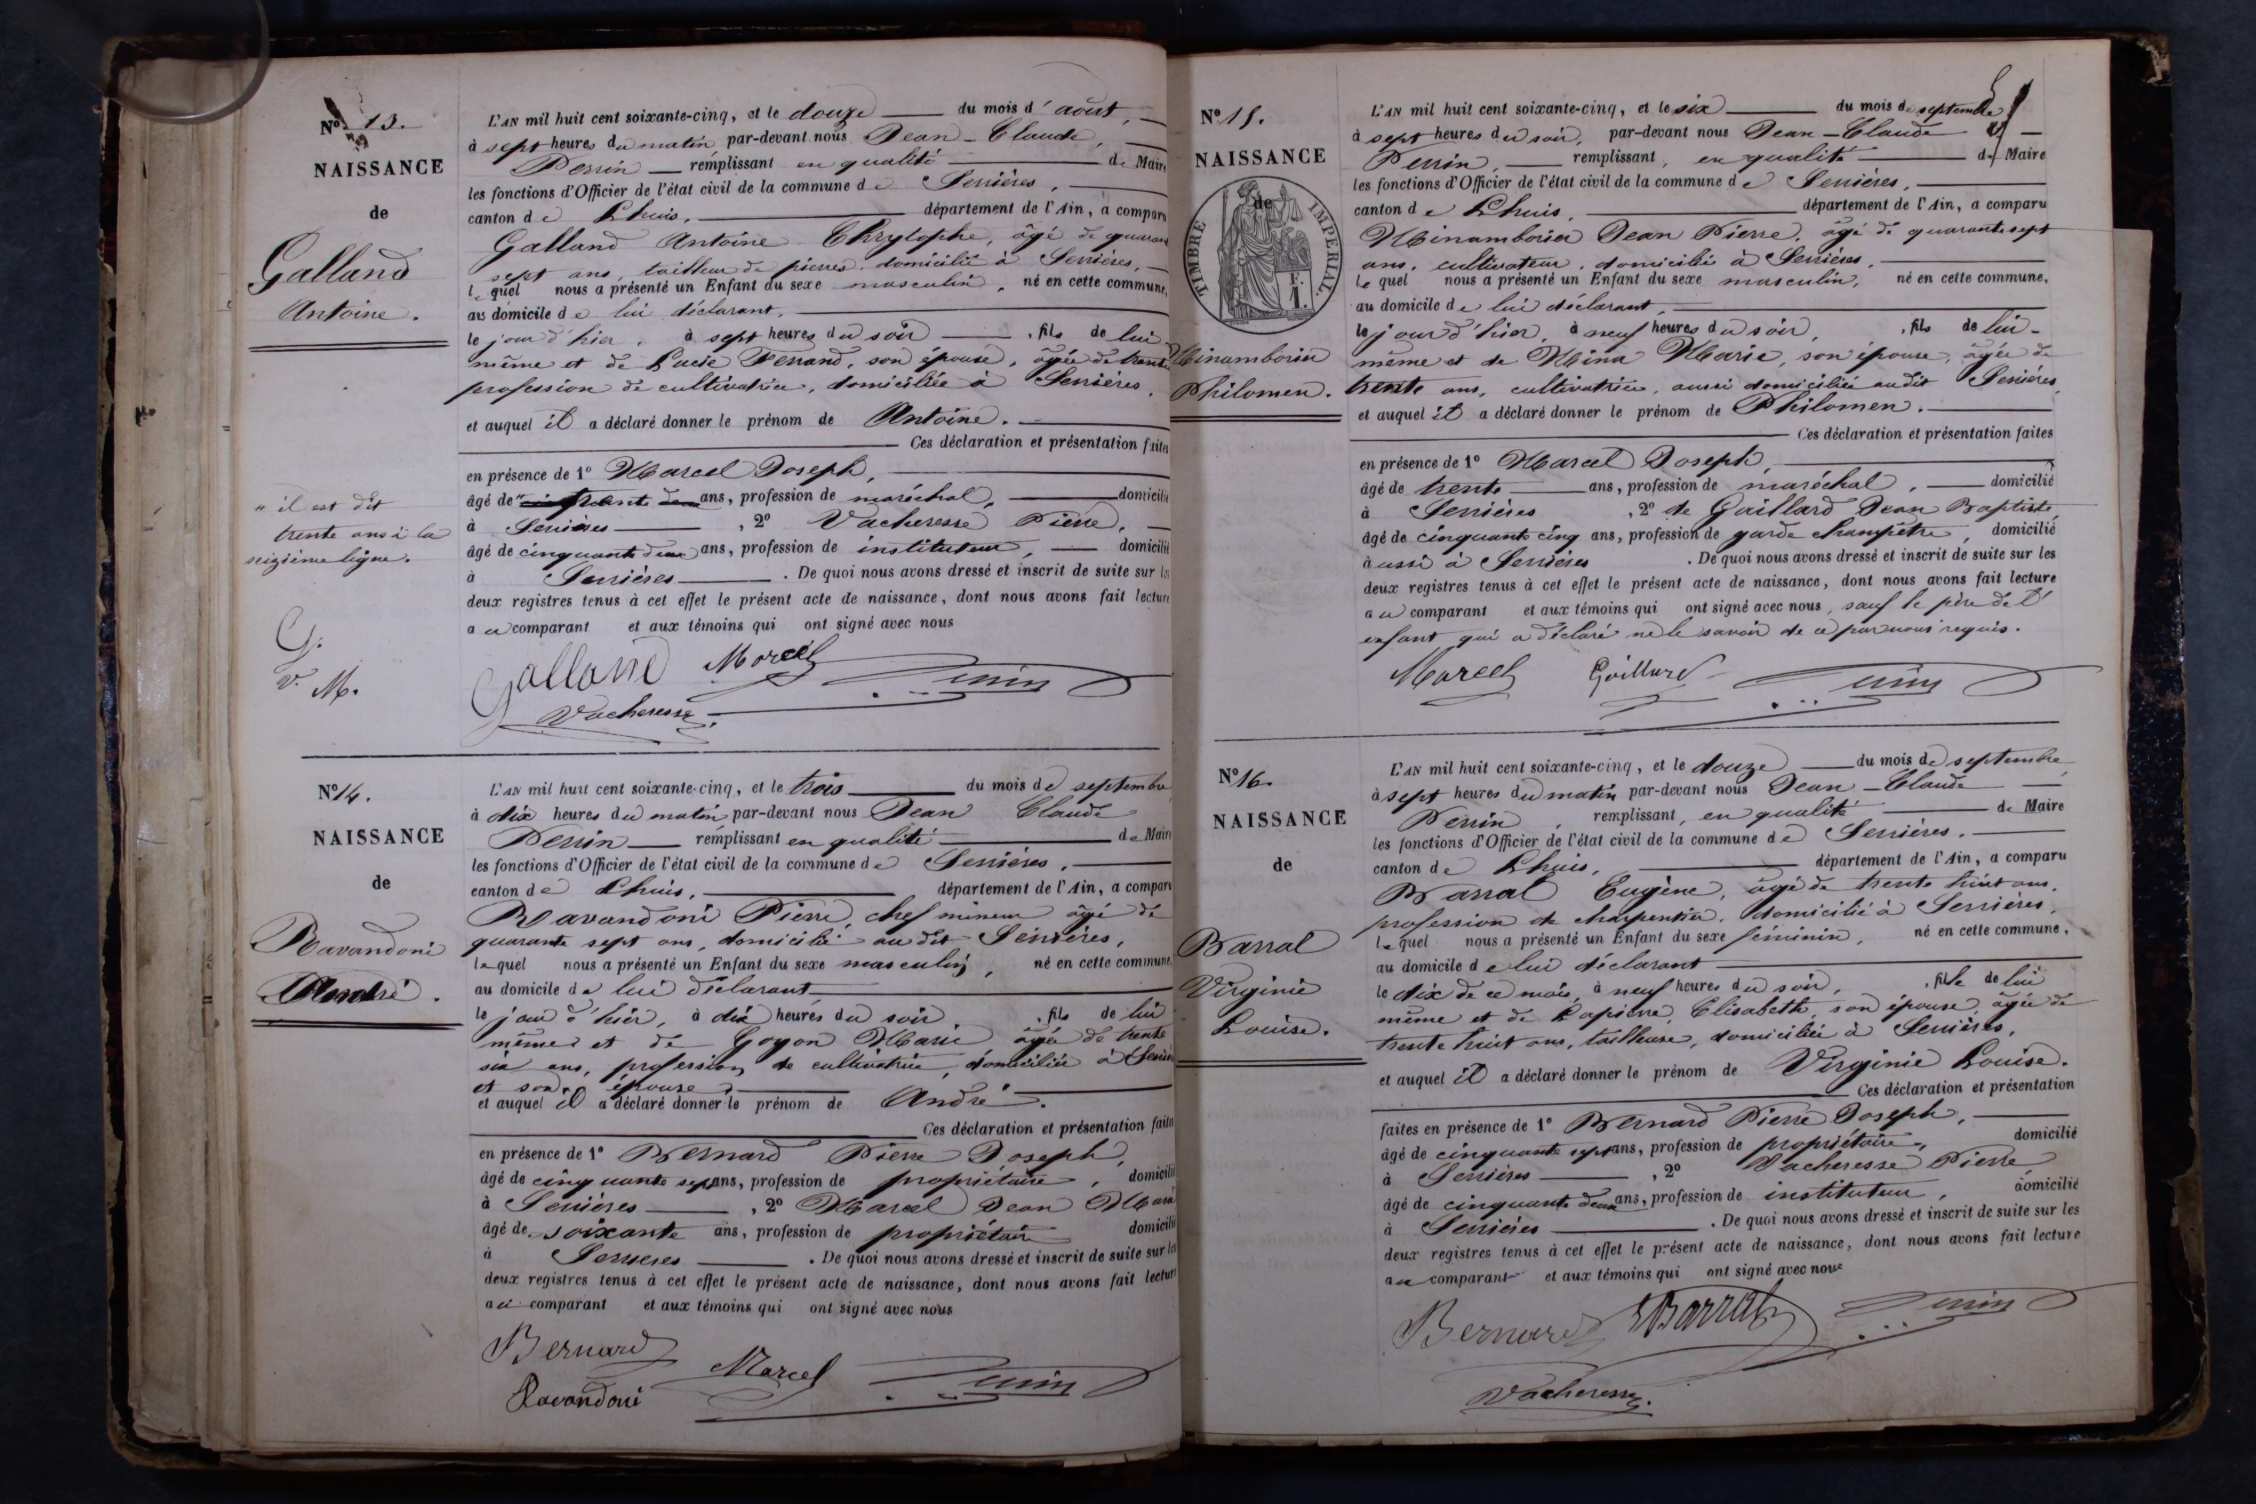 Nº 13.
NAISSANCE
de
Galland
Antoine.
L'AN mil huit cent soixante-cinq, et le douze du mois d'août,
à sept heures du matin, par-devant nous Jean-Claude
Perrin remplissant en qualité de Maire
les fonctions d'Officier de l'état civil de la commune de Serrières,
canton de Lhuis, département de l'Ain, a comparu
Galland Antoine Chrystophe, âgé de quarante
sept ans, tailleur de pierres, domicilié à Serrières,
lequel nous a présenté un Enfant du sexe masculin, né en cette commune,
au domicile de lui déclarant,
le jour d'hier, à sept heures du soir, fils de lui
même et de Lucie Ferrand, son épouse, âgée de trente
profession de cultivatrice, domiciliée à Serrières,
et auquel il a déclaré donner le prénom de Antoine.
Ces déclaration et présentation faites
en présence de 1º Marcel Joseph,
âgé de ans, profession de maréchal, domicilié
à Serrières, 2º Vacheresse Pierre,
âgé de cinquante deux ans, profession de instituteur, domicilié
à Serrières. De quoi nous avons dressé et inscrit de suite sur les
deux registres tenus à cet effet le présent acte de naissance, dont nous avons fait lecture
au comparant et aux témoins qui ont signé avec nous
" il est dit
trente ans à la
seizième ligne.
G.
V. M.
Galland Marcel Perrin
Vacheresse
Nº 14.
NAISSANCE
de
Ravandoni
André.
L'AN mil huit cent soixante-cinq, et le trois du mois de septembre
à dix heures du matin par-devant nous Jean Claude
Perrin remplissant en qualité de Maire
les fonctions d'Officier de l'état civil de la commune de Serrières,
canton de Lhuis, département de l'Ain, a comparu
Ravandoni Pierre, chef mineur âgé de
quarante sept ans, domicilié au dit Serrières,
lequel nous a présenté un Enfant du sexe masculin, né en cette commune,
au domicile de lui déclarant
le jour d'hier, à dix heures du soir, fils de lui
même et de Goyon Marie âgée de trente
six ans, profession de cultivatrice, domiciliée à Serrières
et son épouse
et auquel il a déclaré donner le prénom de André.
Ces déclaration et présentation faites
en présence de 1º Bernard Pierre Joseph,
âgé de cinquante sept ans, profession de propriétaire, domicilié
à Serrières, 2º Marcel Jean Marie
âgé de soixante ans, profession de propriétaire domicilié
à Serrières. De quoi nous avons dressé et inscrit de suite sur les
deux registres tenus à cet effet le présent acte de naissance, dont nous avons fait lecture
au comparant et aux témoins qui ont signé avec nous
Bernard
Marcel Perrin
Ravandoni
Nº 15.
NAISSANCE
de
TIMBRE IMPERIAL
F.
1.
Minamborin
Philomen.
L'AN mil huit cent soixante-cinq, et le six du mois de septembre
à sept heures du soir, par-devant nous Jean-Claude
Perrin, remplissant, en qualité de Maire
les fonctions d'Officier de l'état civil de la commune de Serrières,
canton de Lhuis, département de l'Ain, a comparu
Minamborin Jean Pierre, âgé de quarante sept
ans, cultivateur, domicilié à Serrières,
lequel nous a présenté un Enfant du sexe masculin, né en cette commune,
au domicile de lui déclarant,
le jour d'hier, à neuf heures du soir, fils de lui-
même et de Mina Marie, son épouse, âgée de
trente ans, cultivatrice, aussi domiciliée audit Serrières,
et auquel il a déclaré donner le prénom de Philomen.
Ces déclaration et présentation faites
en présence de 1º Marcel Joseph,
âgé de trente ans, profession de maréchal, domicilié
à Serrières, 2º de Gaillard Jean Baptiste,
âgé de cinquante cinq ans, profession de garde champêtre, domicilié
aussi à Serrières. De quoi nous avons dressé et inscrit de suite sur les
deux registres tenus à cet effet le présent acte de naissance, dont nous avons fait lecture
au comparant et aux témoins qui ont signé avec nous, sauf le père de l'
enfant qui a déclaré ne le savoir de ce par nous requis.
Marcel Gaillard Perrin
Nº 16.
NAISSANCE
de
Barral
Virginie
Louise.
L'AN mil huit cent soixante-cinq, et le douze du mois de septembre,
à sept heures du matin par-devant nous Jean-Claude
Perrin, remplissant, en qualité de Maire
les fonctions d'Officier de l'état civil de la commune de Serrières,
canton de Lhuis, département de l'Ain, a comparu
Barral Eugène, âgé de trente huit ans,
profession de charpentier, domicilié à Serrières,
lequel nous a présenté un Enfant du sexe féminin, né en cette commune,
au domicile de lui déclarant
le dix de ce mois, à neuf heures du soir, fille de lui
même et de Lapierre Elisabeth, son épouse, âgée de
trente huit ans, tailleuse, domiciliée à Serrières,
et auquel il a déclaré donner le prénom de Virginie Louise.
Ces déclaration et présentation
faites en présence de 1º Bernard Pierre Joseph,
âgé de cinquante sept ans, profession de propriétaire, domicilié
à Serrières, 2º Vacheresse Pierre
âgé de cinquante deux ans, profession de instituteur, domicilié
à Serrières. De quoi nous avons dressé et inscrit de suite sur les
deux registres tenus à cet effet le présent acte de naissance, dont nous avons fait lecture
au comparant et aux témoins qui ont signé avec nous
Bernard EBarral Perrin
Vacheresse